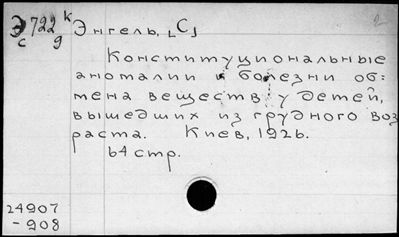 Э722 к Энгель, [С]
с д
Конституциональные
аномалии и болезни об=
мена веществ у детей,
вышедших из грудного воз
раста. Киев, 1926.
64 стр.
24907
-908